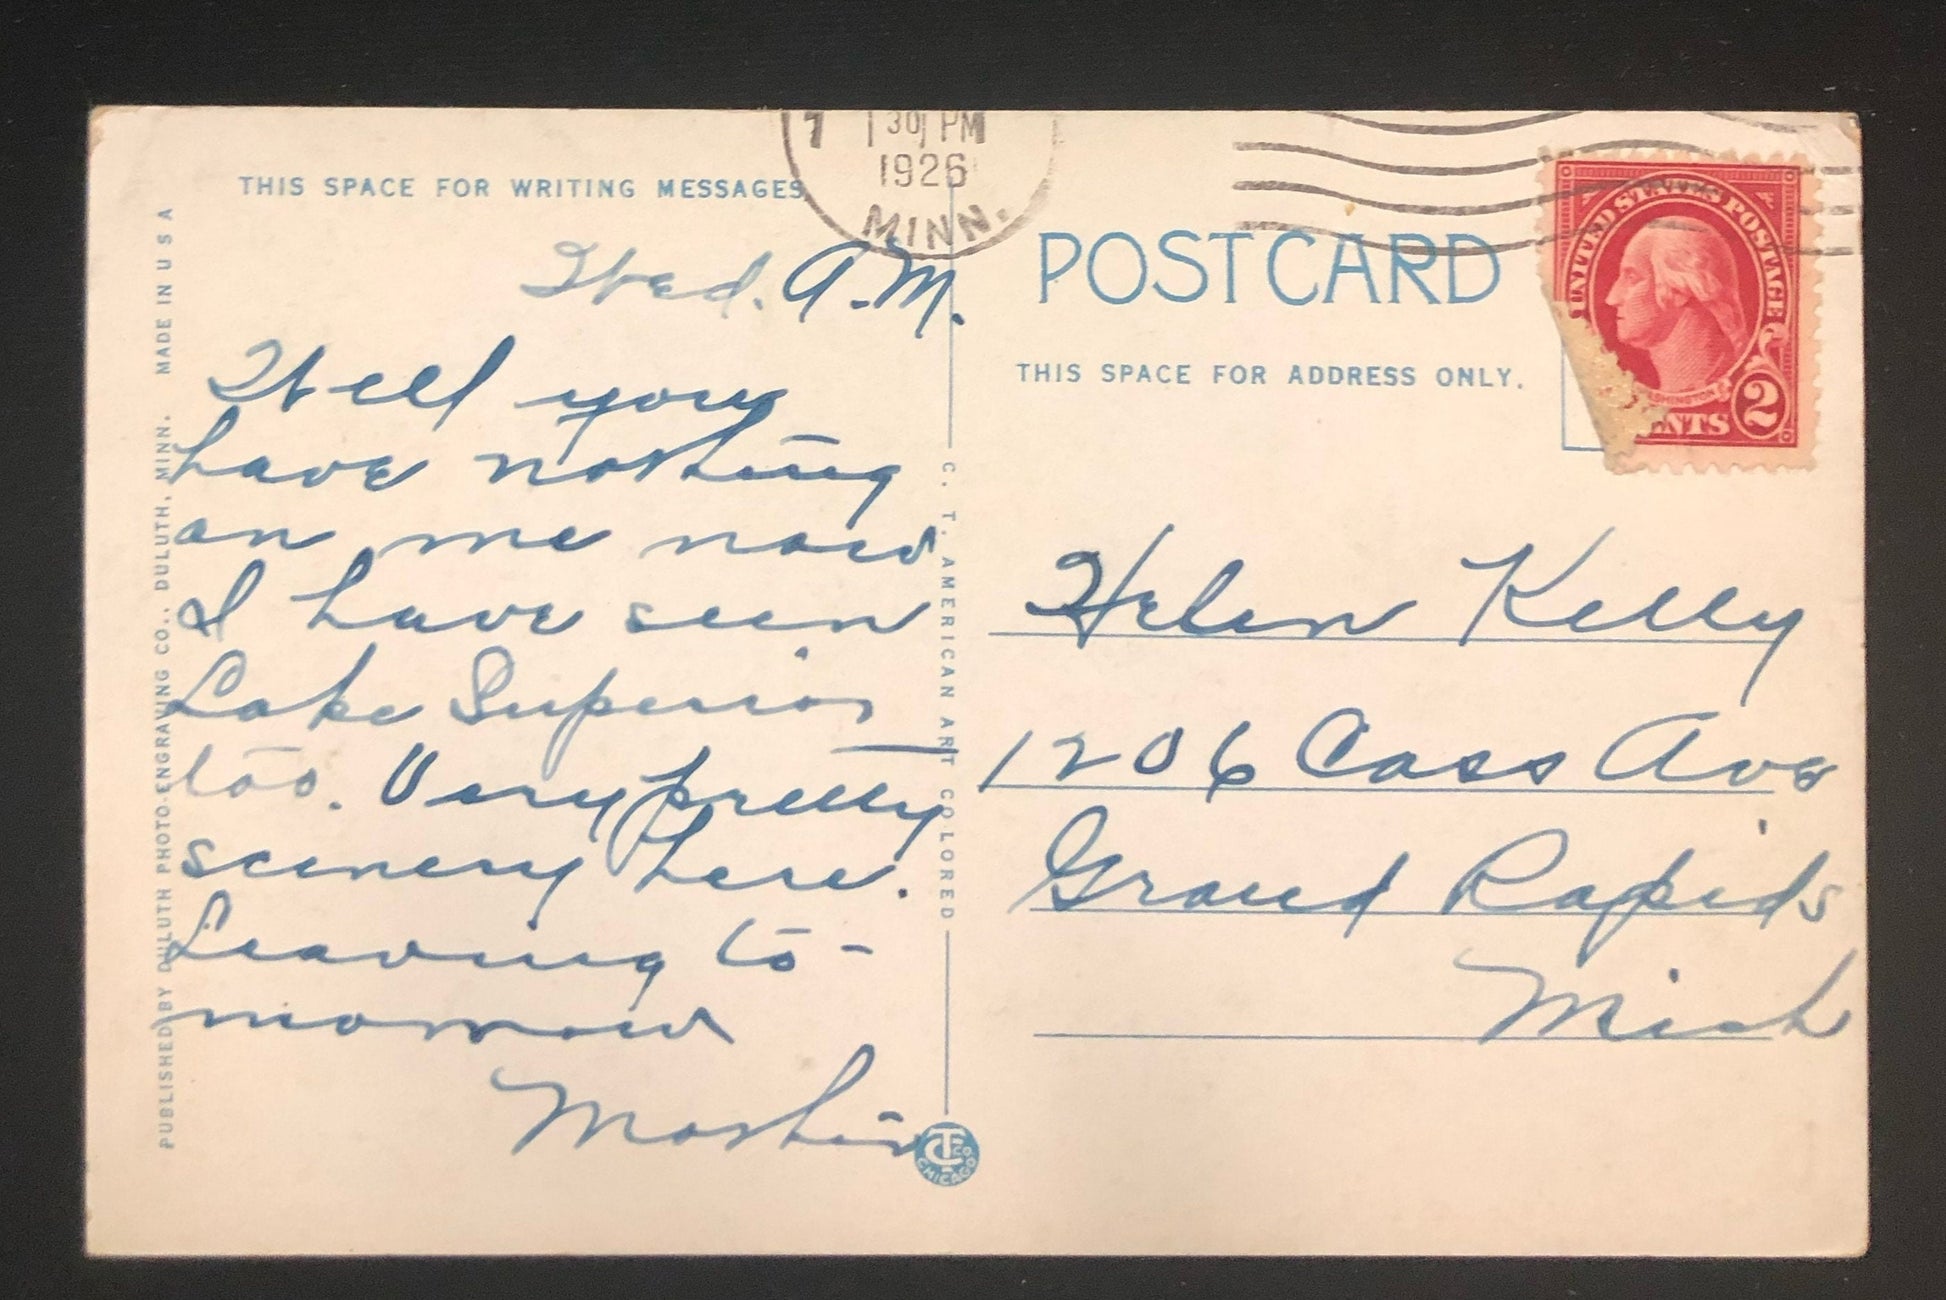 THIS SPACE FOR WRITING MESSAGES
7 1 30 PM
1926
MINN.
Wed. A.M.
Well you
have nothing
on me now
I have seen
Lake Superior
too. Very pretty
scenery here.
Leaving to-
morrow
PUBLISHED BY DULUTH PHOTO-ENGRAVING CO., DULUTH, MINN. MADE IN U S A
C. T. AMERICAN ART COLORED
CHICAGO
POST CARD
THIS SPACE FOR ADDRESS ONLY.
UNITED STATES POSTAGE
WASHINGTON
NTS 2
Helen Kelly
1206 Cass Ave
Grand Rapids
Mich